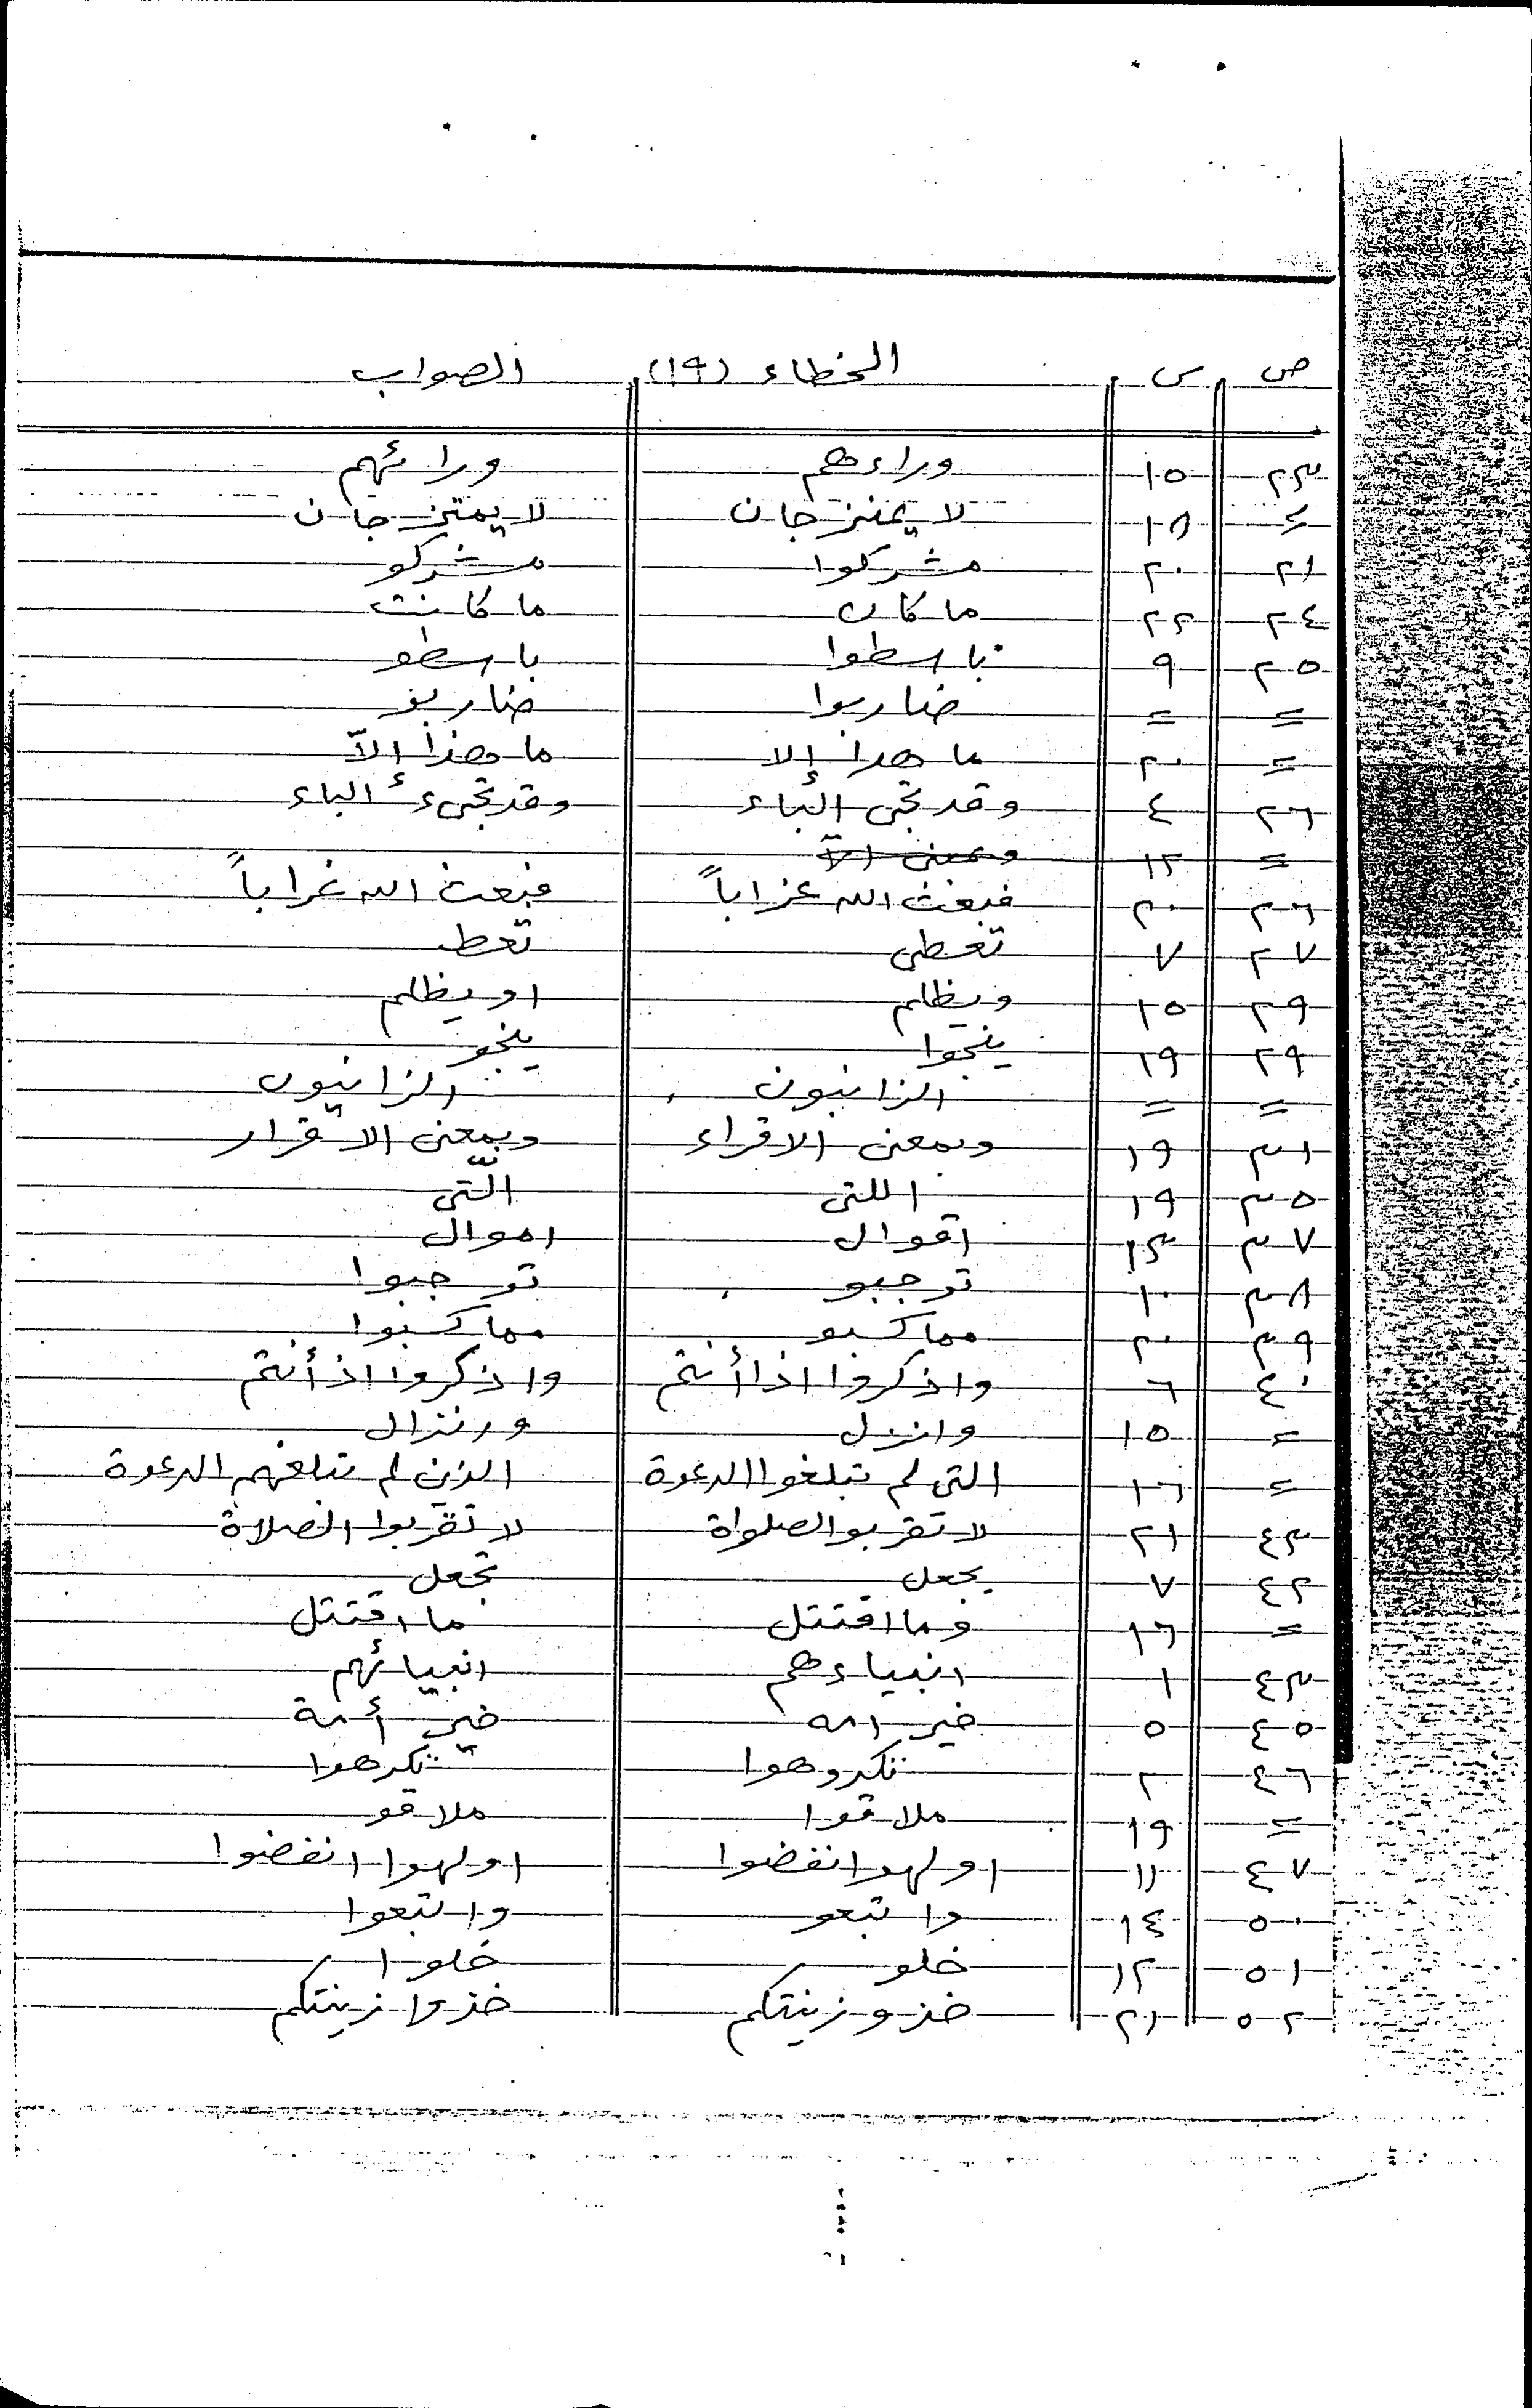 ص س الخطاء (١٩) الصواب
٢٣ ١٥ وراءهم ورائهم
= ١٨ لا يمنزجان لا يمتزجان
٢١ ٢٠ مشركوا مشركو
٢٤ ٢٢ ما كان ما كانت
٢٥ ٩ باسطوا باسطو
= = ضاربوا ضاربو
= ٢٠ ما هدا إلا ما هذا الاّ
٢٦ ٤ وقد تجى الباء وقد تجىء الباء
= ١٢ وبمعنى الآ
٢٦ ٢٠ فبعث الله عزاباً فبعث الله غراباً
٢٧ ٧ تعطى تعط
٢٩ ١٥ ويظلم او يظلم
٢٩ ١٩ ينجوا ينجو
= = الزانبون الزانيون
٣١ ١٩ وبمعنى الاقراء وبمعنى الاقرار
٣٥ ١٩ اللتى التّى
٣٧ ١٣ اقوال اموال
٣٨ ١٠ توجبو توجبوا
٣٩ ٢٠ مما كسبو مما كسبوا
٤٠ ٦ واذكروا اذا أنتم واذكروا اذ أنتم
= ١٥ وانزل ورنزال
= ١٦ التى لم تبلغوا الدعوة الذين لم تبلغهم الدعوة
٤٣ ٢١ لا تقربو الصلواة لا تقربوا الصلاة
٤٢ ٧ يجعل تجعل
= ١٦ وما اقتتل ما اقتتل
٤٣ ١ انبياءهم انبيائهم
٤٥ ٥ خير امه خير أمة
٤٦ ٢ تكروهوا تكرهوا
= ١٩ ملاقوا ملاقو
٤٧ ١١ اولهوا نفضوا اولهوا انفضوا
٥٠ ١٤ واتبعو واتبعوا
٥١ ١٢ خلو خلوا
٥٢ ٢١ خذو زينتكم خذوا زينتكم